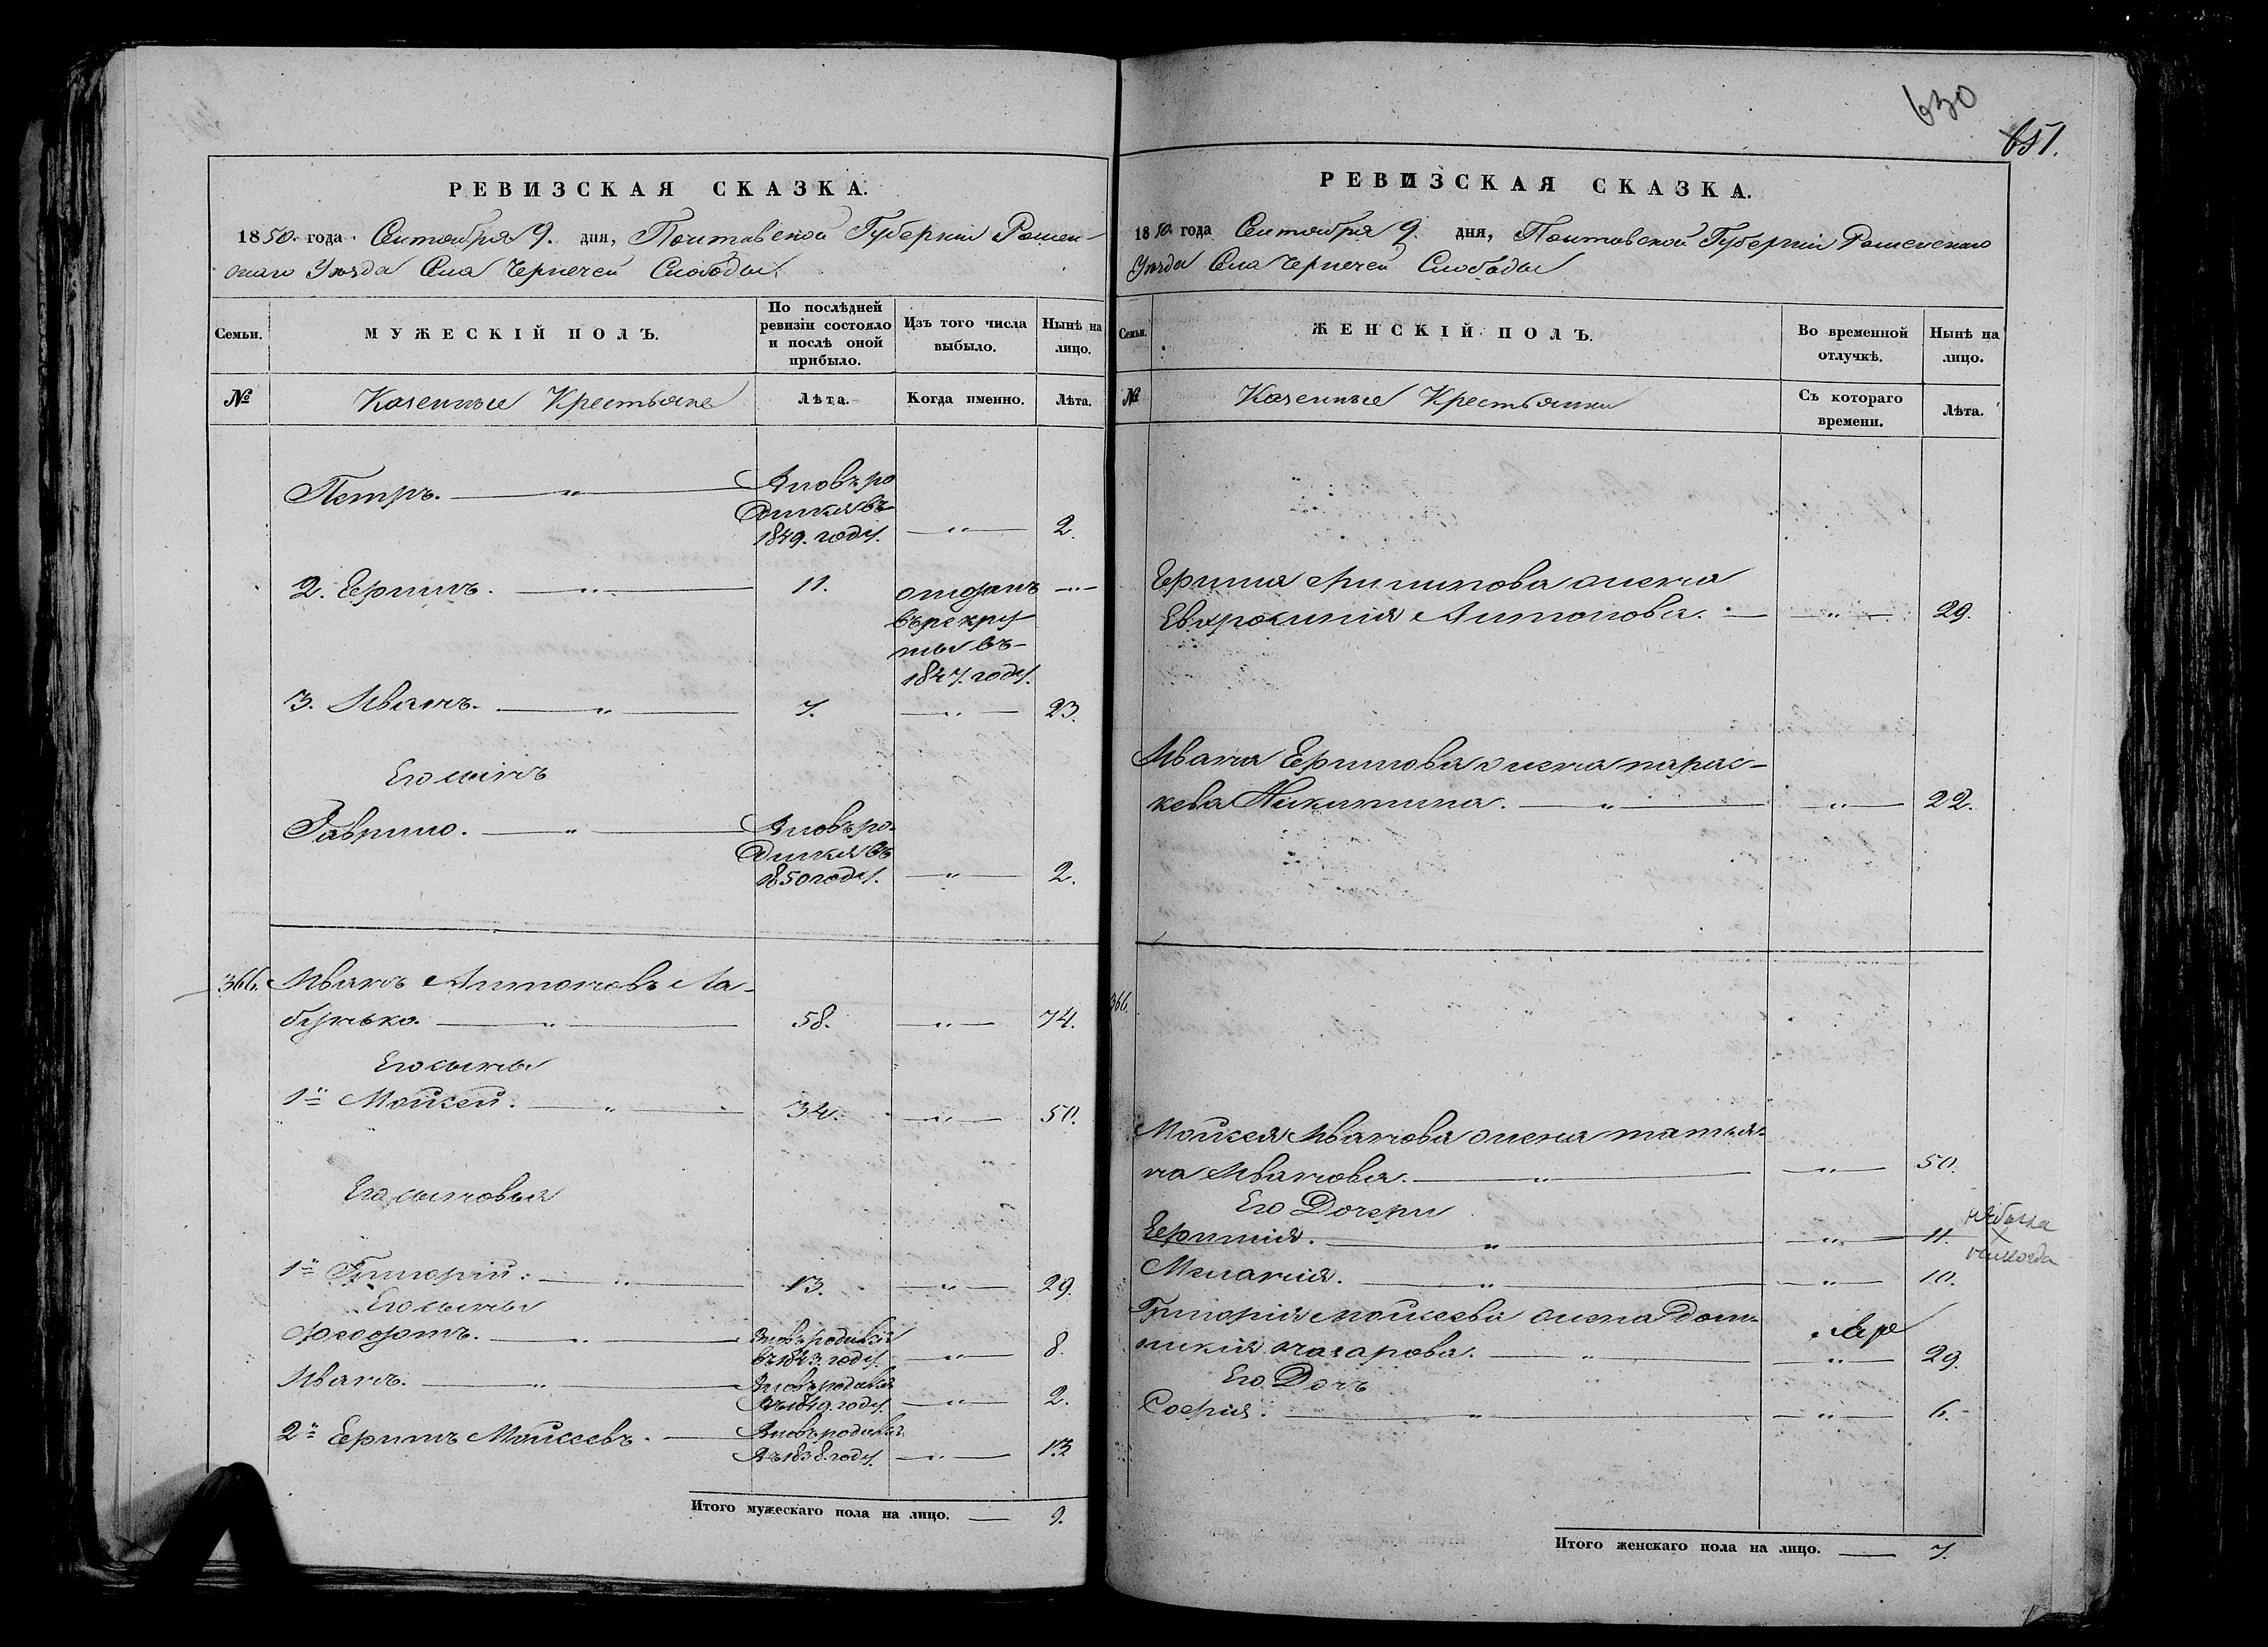 РЕВИЗСКАЯ СКАЗКА.
1850. года Сентября 9. дня, Полтавской Губерніи Ромен-
скаго Уѣзда Села Чернечей Слободы.
Семьи.
МУЖЕСКІЙ ПОЛЪ.
По послѣдней ревизіи состояло и послѣ оной прибыло.
Изъ того числа выбыло.
Нынѣ на лицо.
№
Казенные Крестьяне
Лѣта.
Когда именно.
Лѣта.
Петръ. — „ — Вновь ро
дился въ
1849. году. — „ — 2.
2. Ефимъ. — „ — 11. отданъ — „ —
въ рекру
ты въ
1847. году.
3. Иванъ. — „ — 7. — „ — 23.
Его сынъ
Гаврило. — „ — Вновь ро-
дился въ
1850 году. — „ — 2.
366. Иванъ Антоновъ Ла-
бунько. — „ — 58. — „ — 74.
Его сыны
1й Мойсей. — „ — 34. — „ — 50.
Его сыновья
1й Григорій. — „ — 13. — „ — 29.
Его сыны
Феодотъ. — „ — Вновь родился
въ 1843. году. — „ — 8.
Иванъ. — „ — Вновь родился
въ 1849. году. — „ — 2.
2й Ефимъ Мойсеевъ. — Вновь родился
въ 1838. году. — „ — 13
Итого мужескаго пола на лицо. — 9.
630
651.
РЕВИЗСКАЯ СКАЗКА.
1850. года Сентября 9. дня, Полтавской Губерніи Роменскаго
Уѣзда Села Чернечей Слободы
Семьи.
ЖЕНСКІЙ ПОЛЪ.
Во временной отлучкѣ.
Нынѣ на лицо.
№
Казенные Крестьянки
Съ котораго времени.
Лѣта.
Ефима жена
Евфросинія Антонова. — „ — 29.
Ивана Ефимова жена парас-
кева Никитина. — „ — „ — 22.
366.
Мойсея Иванова жена татья-
на Иванова. — „ — „ — 50.
Его Дочери
Ефимія. — „ — „ — 11. небыла
никогда
Меланія. — „ — „ — 10.
Григорія мойсеева жена Дом-
никія Назарова. — „ — „ — 29.
Его Дочь
Софія. — „ — „ — 6.
Итого женскаго пола на лицо. — 7.